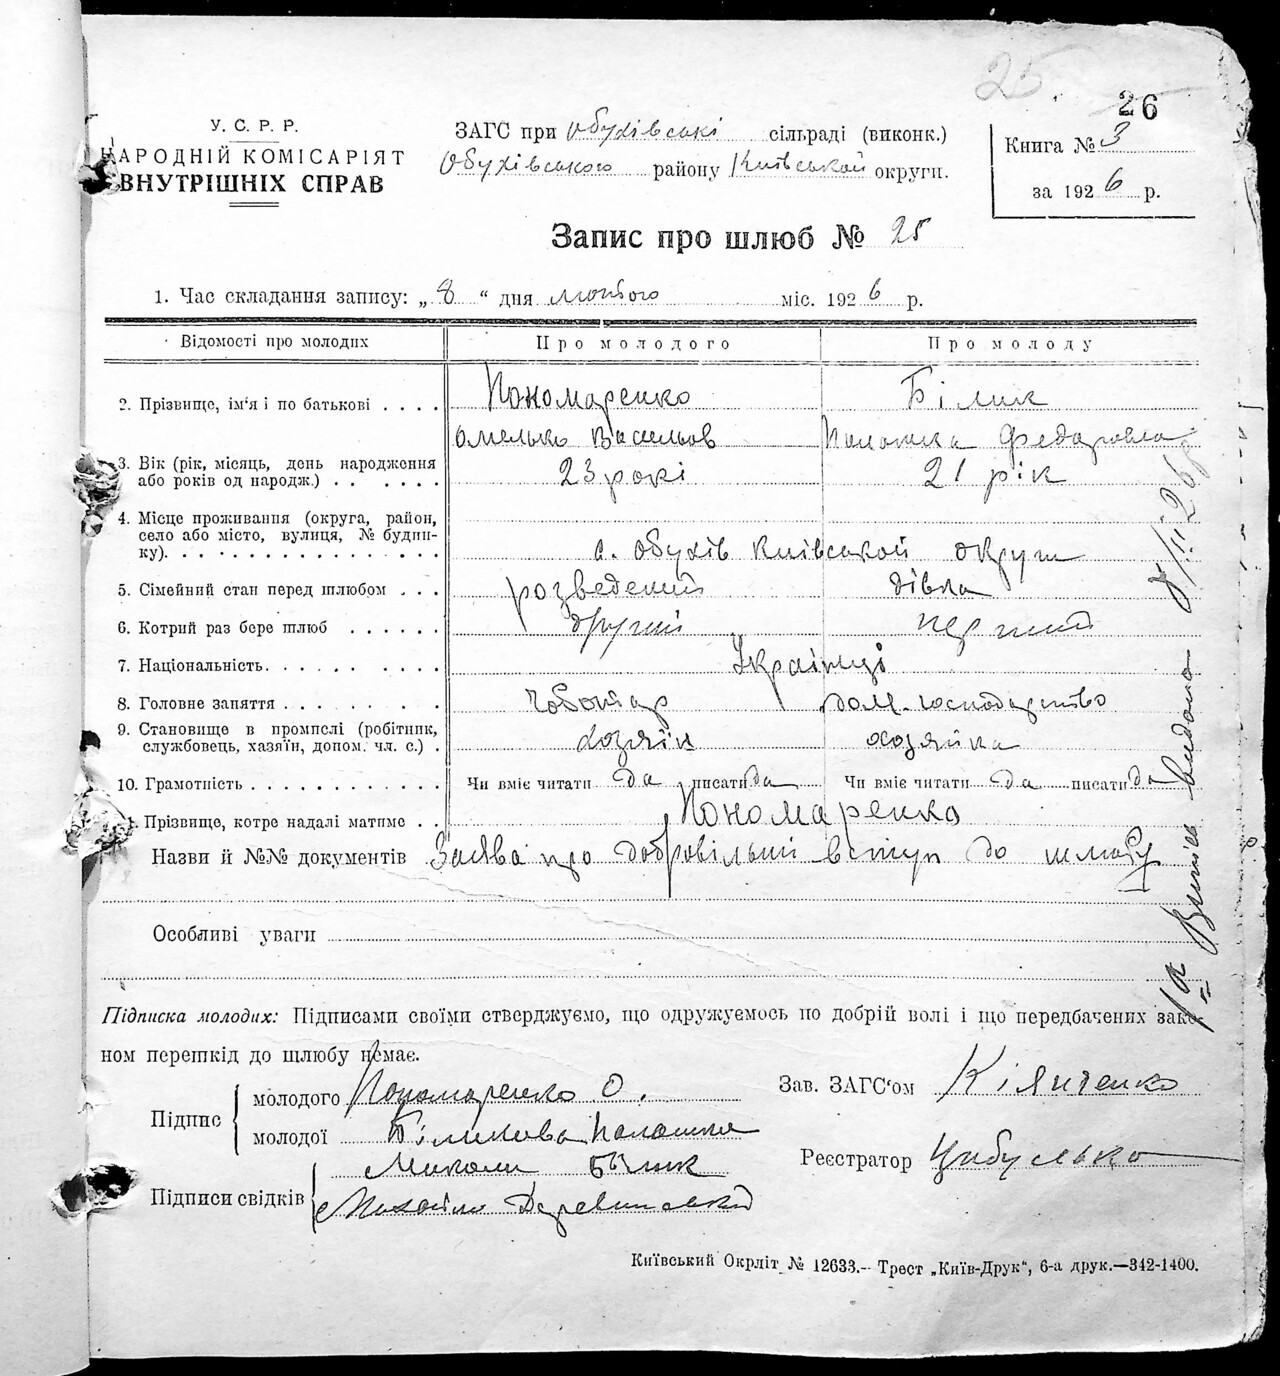 25
26
У. С. Р. Р.
НАРОДНІЙ КОМІСАРІЯТ
ВНУТРІШНІХ СПРАВ
ЗАГС при Обухівські сільраді (виконк.)
Обухівського району Київської округи.
Книга № 3
за 1926 р.
Запис про шлюб № 25
1. Час складання запису: „ 8 “ дня лютого міс. 1926 р.
Відомості про молодих Про молодого Про молоду
2. Прізвище, ім‘я і по батькові . . . . Пономаренко Білик
Омелько Васильов Палажка Федоровна
3. Вік (рік, місяць, день народження
або років од народж.) . . . . . . 23 рокі 21 рік
4. Місце проживання (округа, район,
село або місто, вулиця, № будин-
ку). . . . . . . . . . . . . . . с. Обухів Київської округи
5. Сімейний стан перед шлюбом . . . розведений дівка
6. Котрий раз бере шлюб . . . . . . другий перший
7. Національність. . . . . . . . . . Українці
8. Головне заняття . . . . . . . . . чоботар дом. господарство
9. Становище в промислі (робітник,
службовець, хазяїн, допом. чл. с.) . хозяїн хозяйка
10. Грамотність . . . . . . . . . . . . Чи вміє читати да писати да Чи вміє читати да писати да
Прізвище, котре надалі матиме . . Пономаренко
Назви й №№ документів Заява про добровільний вступ до шлюбу
Особливі уваги
Підписка молодих: Підписами своїми стверджуємо, що одружуємось по добрій волі і що передбачених зако-
ном перешкід до шлюбу немає.
Підпис
молодого Пономаренко О.
молодої Біликова Палажка
Підписи свідків
Миколи Бѣлик
Михайло Деревинський
Зав. ЗАГС‘ом Кіянченко
Реєстратор Цибулько
Витяг видано 8/II 26р
Київський Окрліт № 12633.— Трест „Київ-Друк“, 6-а друк.—342-1400.